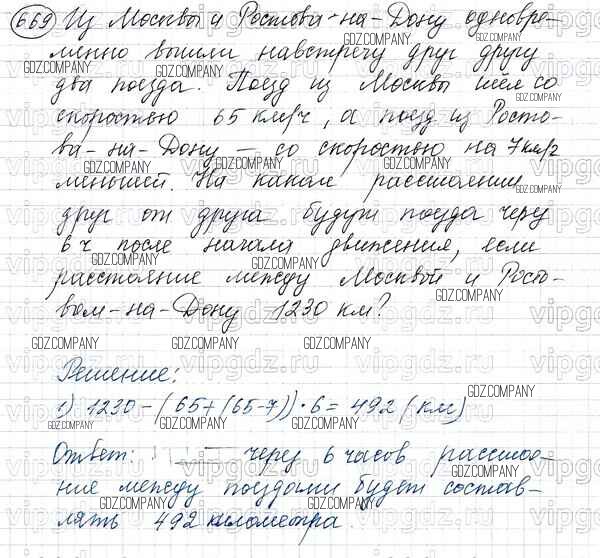 669 Из Москвы и Ростова-на-Дону одновре-
менно вышли навстречу друг другу
два поезда. Поезд из Москвы шёл со
скоростью 65 км/ч, а поезд из Росто-
ва-на-Дону – со скоростью на 7 км/ч
меньшей. На каком расстоянии
друг от друга будут поезда через
6 ч после начала движения, если
расстояние между Москвой и Росто-
вом-на-Дону 1230 км?
Решение:
1) 1230-(65+(65-7))·6=492 (км)
Ответ: через 6 часов расстоя-
ние между поездами будет состав-
лять 492 километра.
GDZ.COMPANY
vipgdz.ru